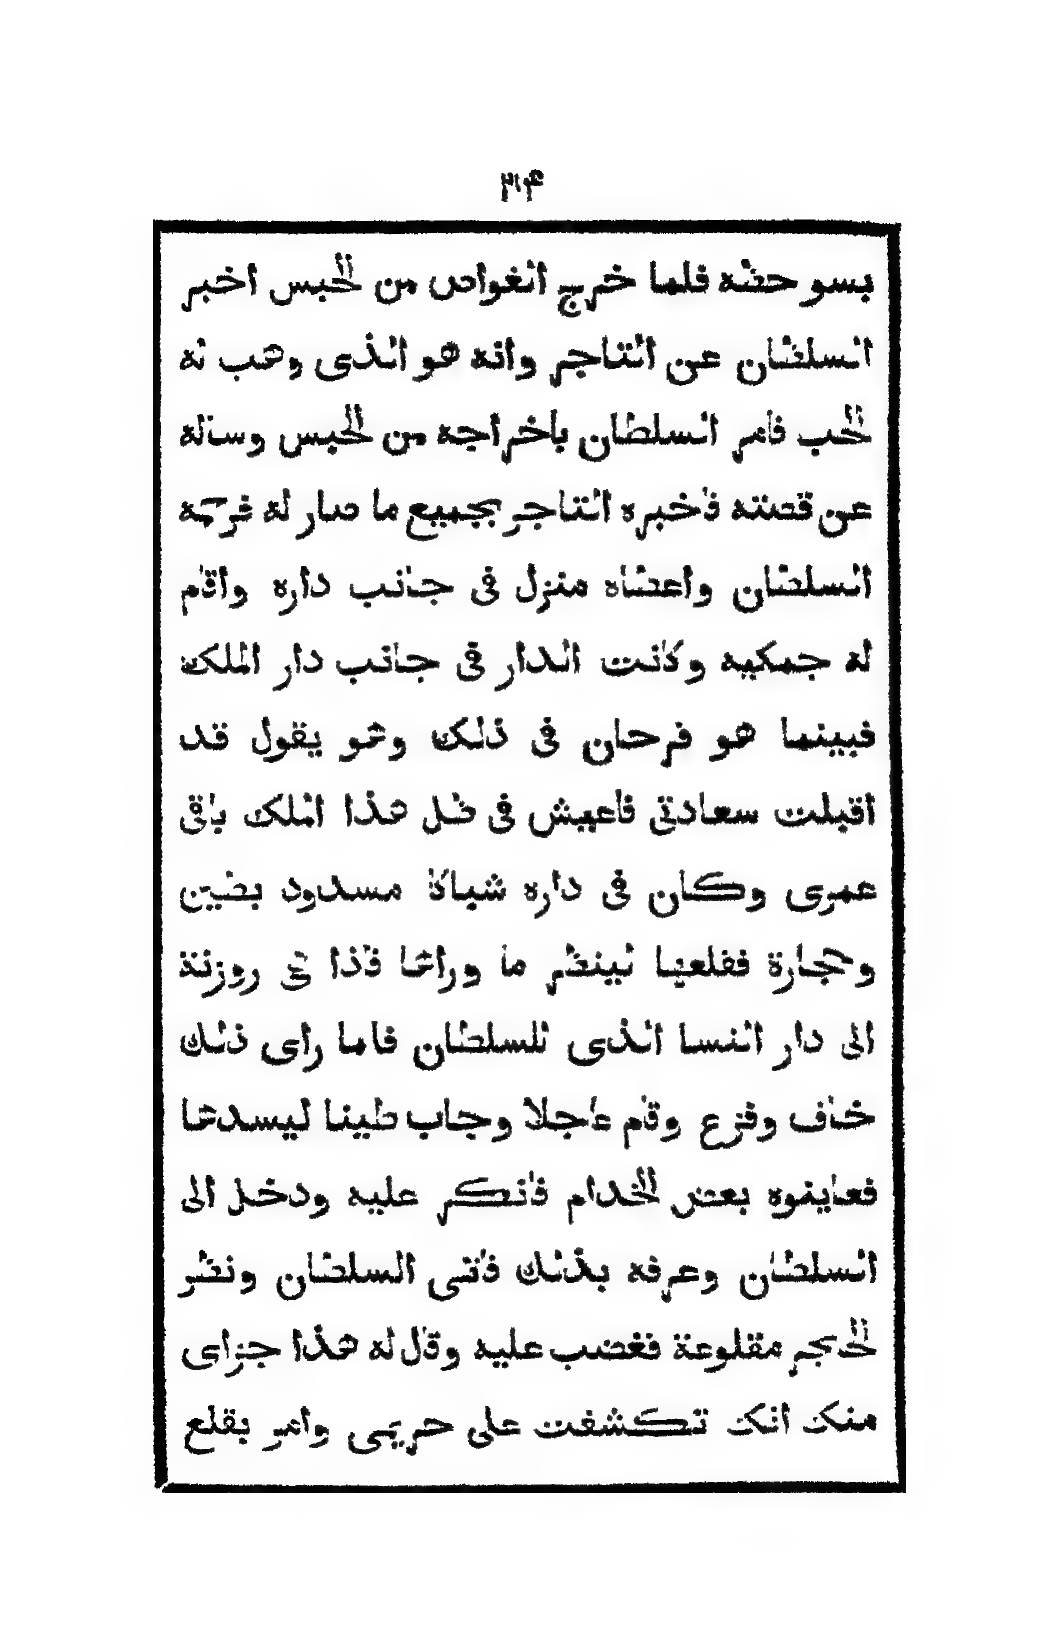 ٣٤
بسو حضه فلما خرج الغواص من الحبس اخبر
السلطان عن التاجر وانه هو الذى وهب له
الحب فامر السلطان باخراجه من الحبس وساله
عن قصته فاخبره التاجر بجميع ما صار له فرحمه
السلطان واعطاه منزل فى جانب داره واقام
له جمكيه وكانت الدار فى جانب دار الملك
فبينما هو فرحان فى ذلك وهو يقول قد
اقبلت سعادتى فاعيش فى ظل هذا الملك باقى
عمرى وكان فى داره شباك مسدود بطين
وحجارة فقلعها لينظر ما وراها فاذا هى روزنة
الى دار النسا الذى للسلطان فلما راى ذلك
خاف وفزع وقام عاجلا وجاب طينا ليسدها
فعاينوه بعض الخدام فانكر عليه ودخل الى
السلطان وعرفه بذلك فاتى السلطان ونظر
الحجر مقلوعة فغضب عليه وقال له هذا جزاى
منك انك تكشفت على حريمى وامر بقلع